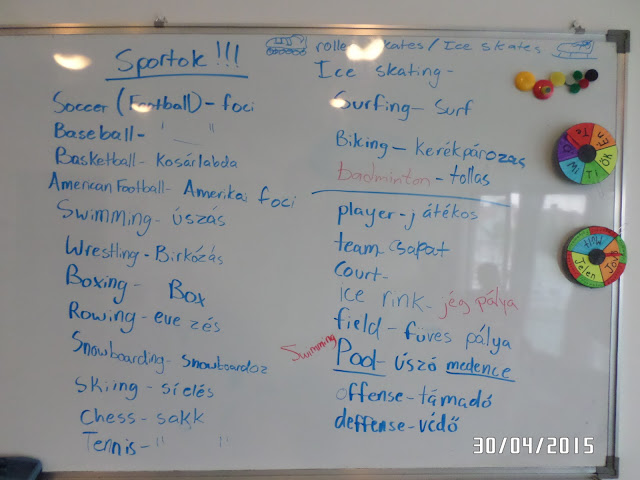 Sportok!!!
Soccer (Football) - foci
Baseball - " "
Basketball - Kosárlabda
American Football - Amerikai foci
Swimming - úszás
Wrestling - Birkózás
Boxing - Box
Rowing - evezés
Snowboarding - snowboardoz
Skiing - síelés
Chess - sakk
Tennis - " "
roller skates / Ice skates
Ice skating -
Surfing - Surf
Biking - kerékpározás
badminton - tollas
player - játékos
team csapat
Court -
Ice rink - jég pálya
field - füves pálya
Swimming Pool - úszó medence
offense - támadó
deffense - védő
Én
Te
Ő
Mi
Ti
Ők
Múlt
Jelen
30/04/2015